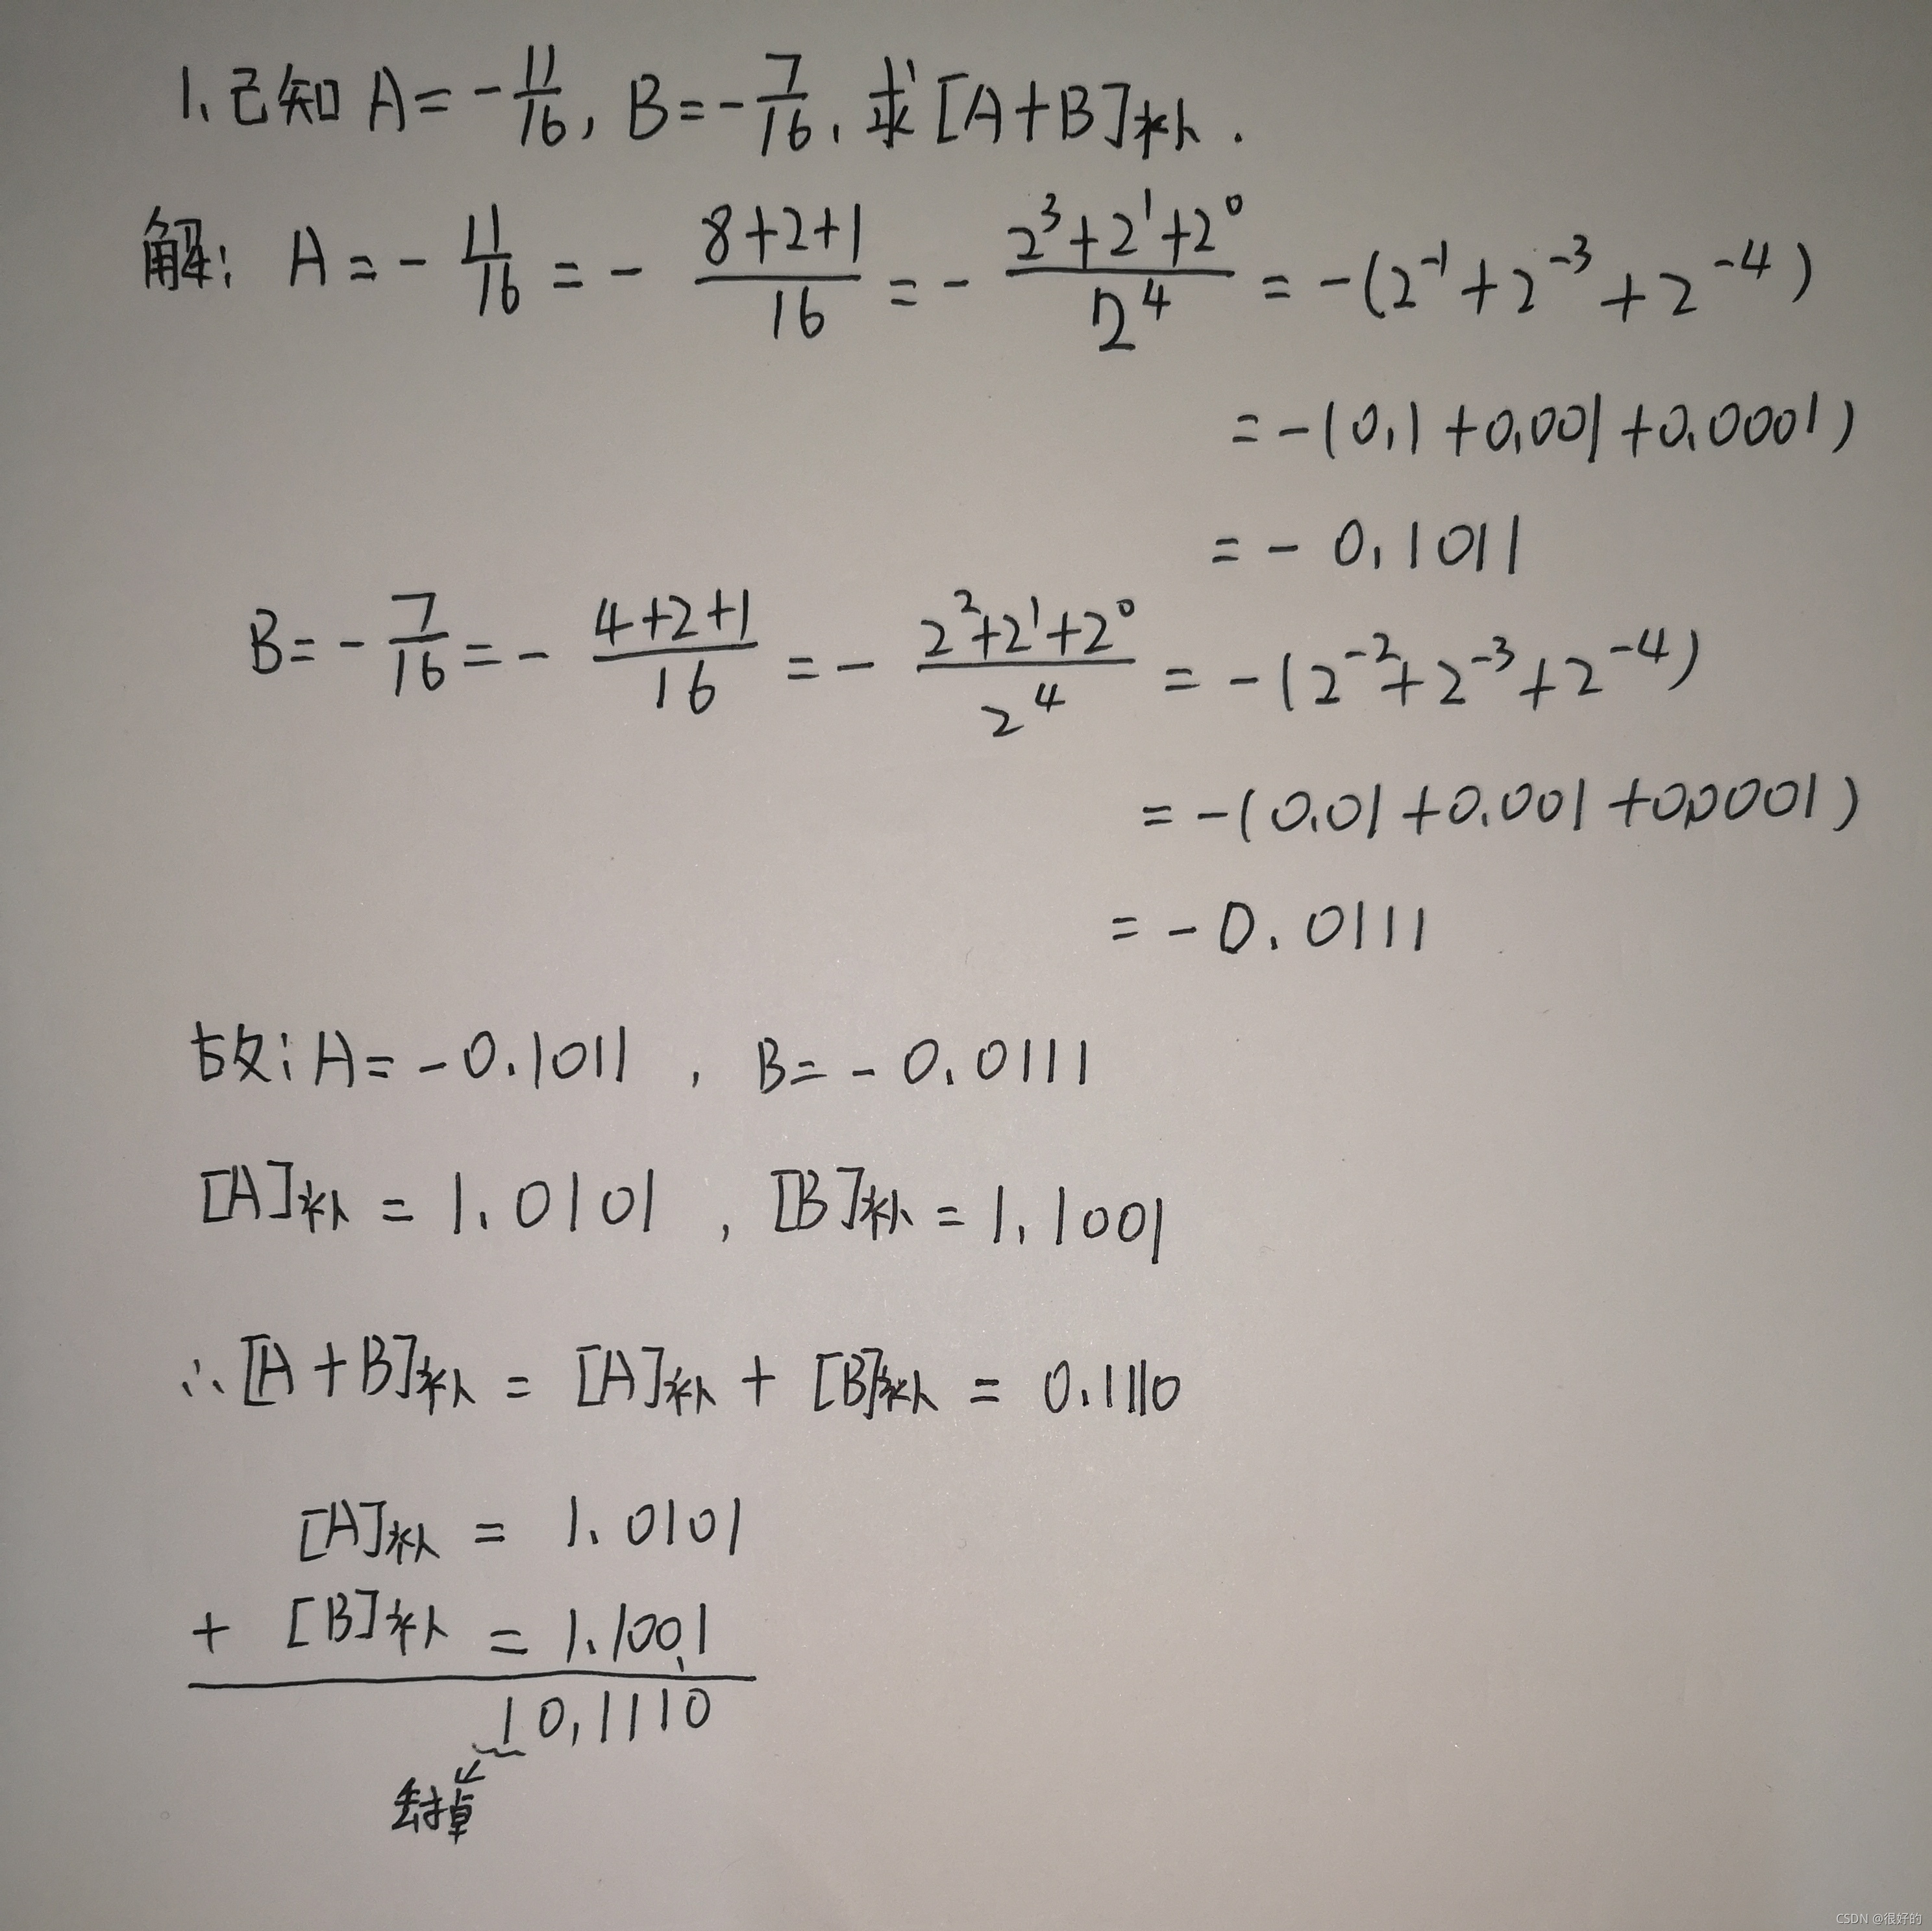 1. 已知 A = -11/16, B = -7/16, 求 [A+B]补.
解: A = - 11/16 = - (8+2+1)/16 = - (2³+2¹+2⁰)/2⁴ = -(2⁻¹+2⁻³+2⁻⁴)
= -(0.1+0.001+0.0001)
= - 0.1011
B = - 7/16 = - (4+2+1)/16 = - (2²+2¹+2⁰)/2⁴ = -(2⁻²+2⁻³+2⁻⁴)
= -(0.01+0.001+0.0001)
= - 0.0111
故: A = - 0.1011 , B = - 0.0111
[A]补 = 1.0101 , [B]补 = 1.1001
∴ [A+B]补 = [A]补 + [B]补 = 0.1110
[A]补 = 1.0101
+ [B]补 = 1.1001
10.1110
丢掉
CSDN @很好的